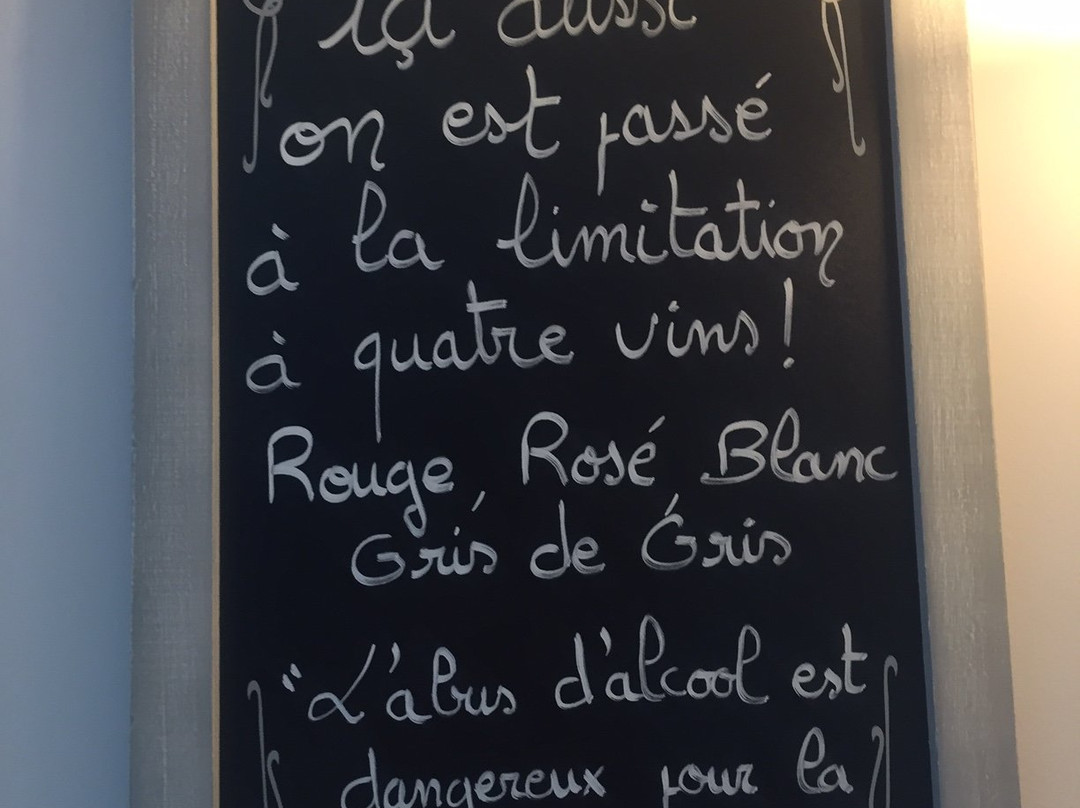 Içi aussi
on est passé
à la limitation
à quatre vins!
Rouge, Rosé Blanc
Gris de Gris
"L'abus d'alcool est
dangereux pour la